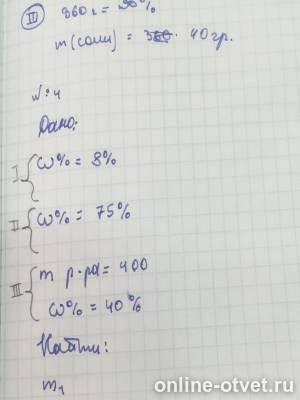 III 360 г = 90%
m(соли) = 40 гр.
№ 4
Дано:
I ω% = 8%
II ω% = 75%
III m р-ра = 400
ω% = 40%
Найти:
m₁
online-otvet.ru